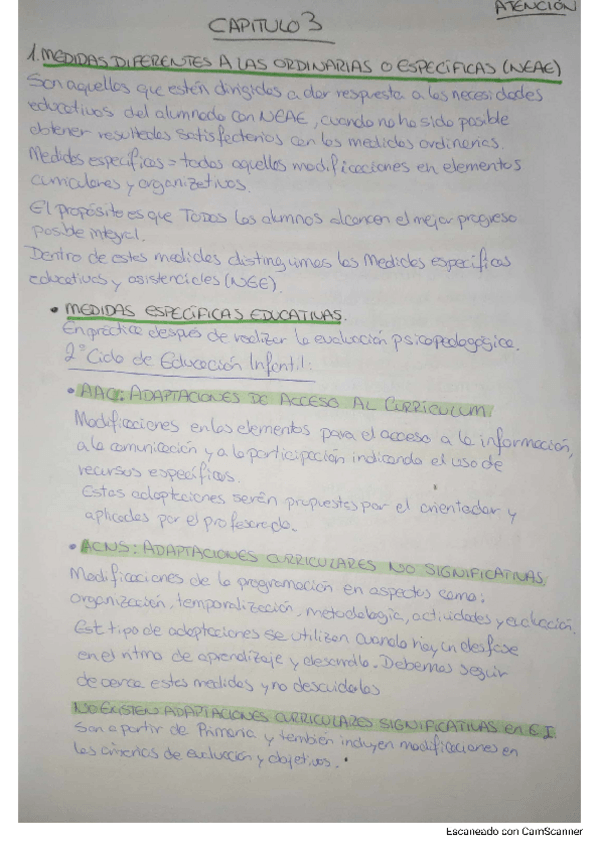 ATENCIÓN
CAPITULO 3
1. MEDIDAS DIFERENTES A LAS ORDINARIAS O ESPECÍFICAS (NEAE)
Son aquellas que estén dirigidas a dar respuesta a las necesidades
educativas del alumnado con NEAE, cuando no ha sido posible
obtener resultados satisfactorios con las medidas ordinarias.
Medidas específicas = todas aquellas modificaciones en elementos
curriculares y organizativos.
El propósito es que TODOS los alumnos alcancen el mejor progreso
posible integral.
Dentro de estas medidas distinguimos las Medidas específicas
educativas y asistenciales (NEE).
• MEDIDAS ESPECÍFICAS EDUCATIVAS.
En práctica después de realizar la evaluación psicopedagógica.
2º Ciclo de Educación Infantil:
• AAC: ADAPTACIONES DE ACCESO AL CURRICULUM.
Modificaciones en los elementos para el acceso a la información,
a la comunicación y a la participación indicando el uso de
recursos específicos.
Estas adaptaciones serán propuestas por el orientador y
aplicadas por el profesorado.
• ACNS: ADAPTACIONES CURRICULARES NO SIGNIFICATIVAS
Modificaciones de la programación en aspectos como:
organización, temporalización, metodología, actividades y evaluación.
Est tipo de adaptaciones se utilizan cuando hay un desfase
en el ritmo de aprendizaje y desarrollo. Debemos seguir
de cerca estas medidas y no descuidarlas
NO EXISTEN ADAPTACIONES CURRICULARES SIGNIFICATIVAS en E.I.
Son a partir de Primaria y también incluyen modificaciones en
los criterios de evaluación y objetivos.
Escaneado con CamScanner